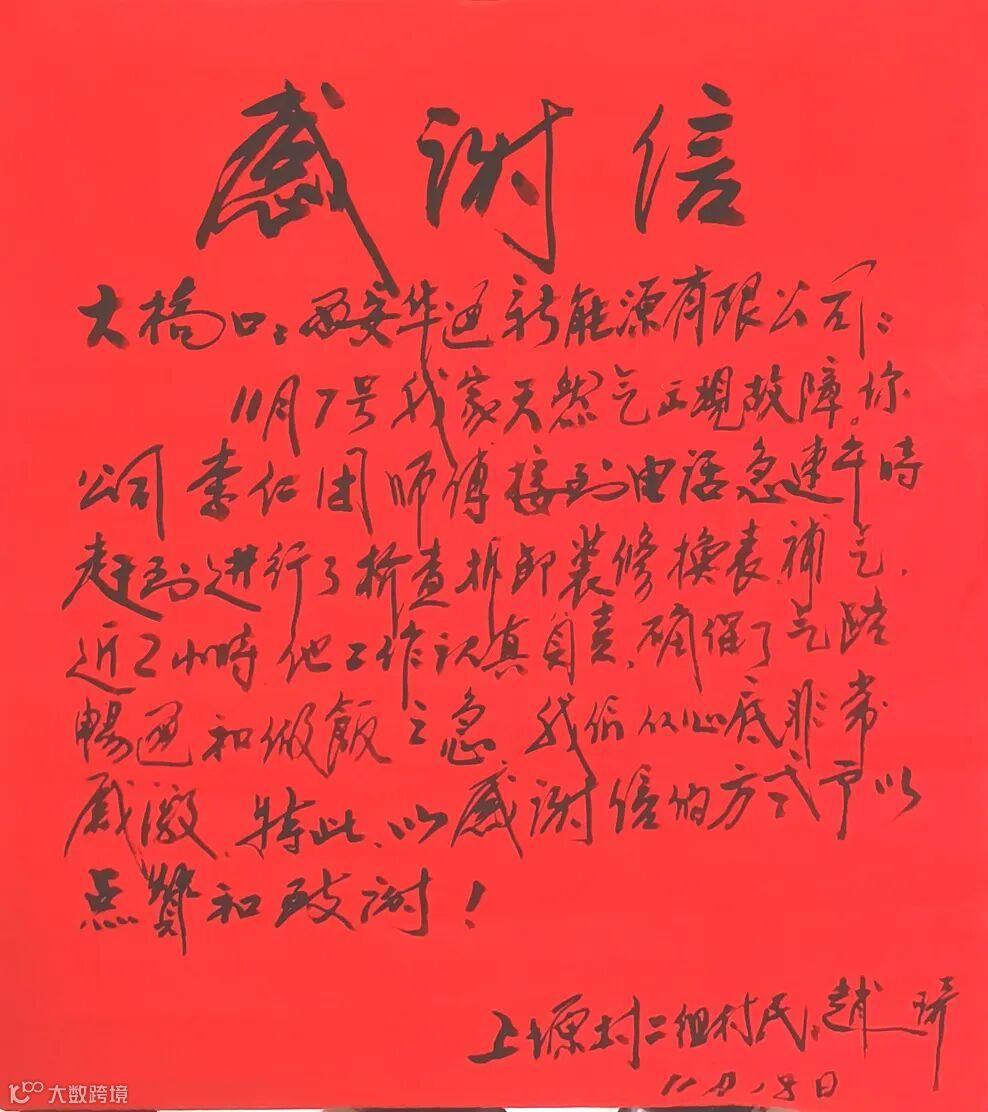 感谢信
大桥口:西安华通新能源有限公司:
11月7号我家天然气出现故障。你
公司李仁团师傅接到电话急速午時
赶到进行了检查拆卸装修换表,補气,
近2小時他工作认真負责,确保了气路
暢通和做飯之急 我们从心底非常
感激,特此,以感谢信的方式予以
点贊和致谢!
上塬村二组村民:趙琦
11月18日
大数跨境